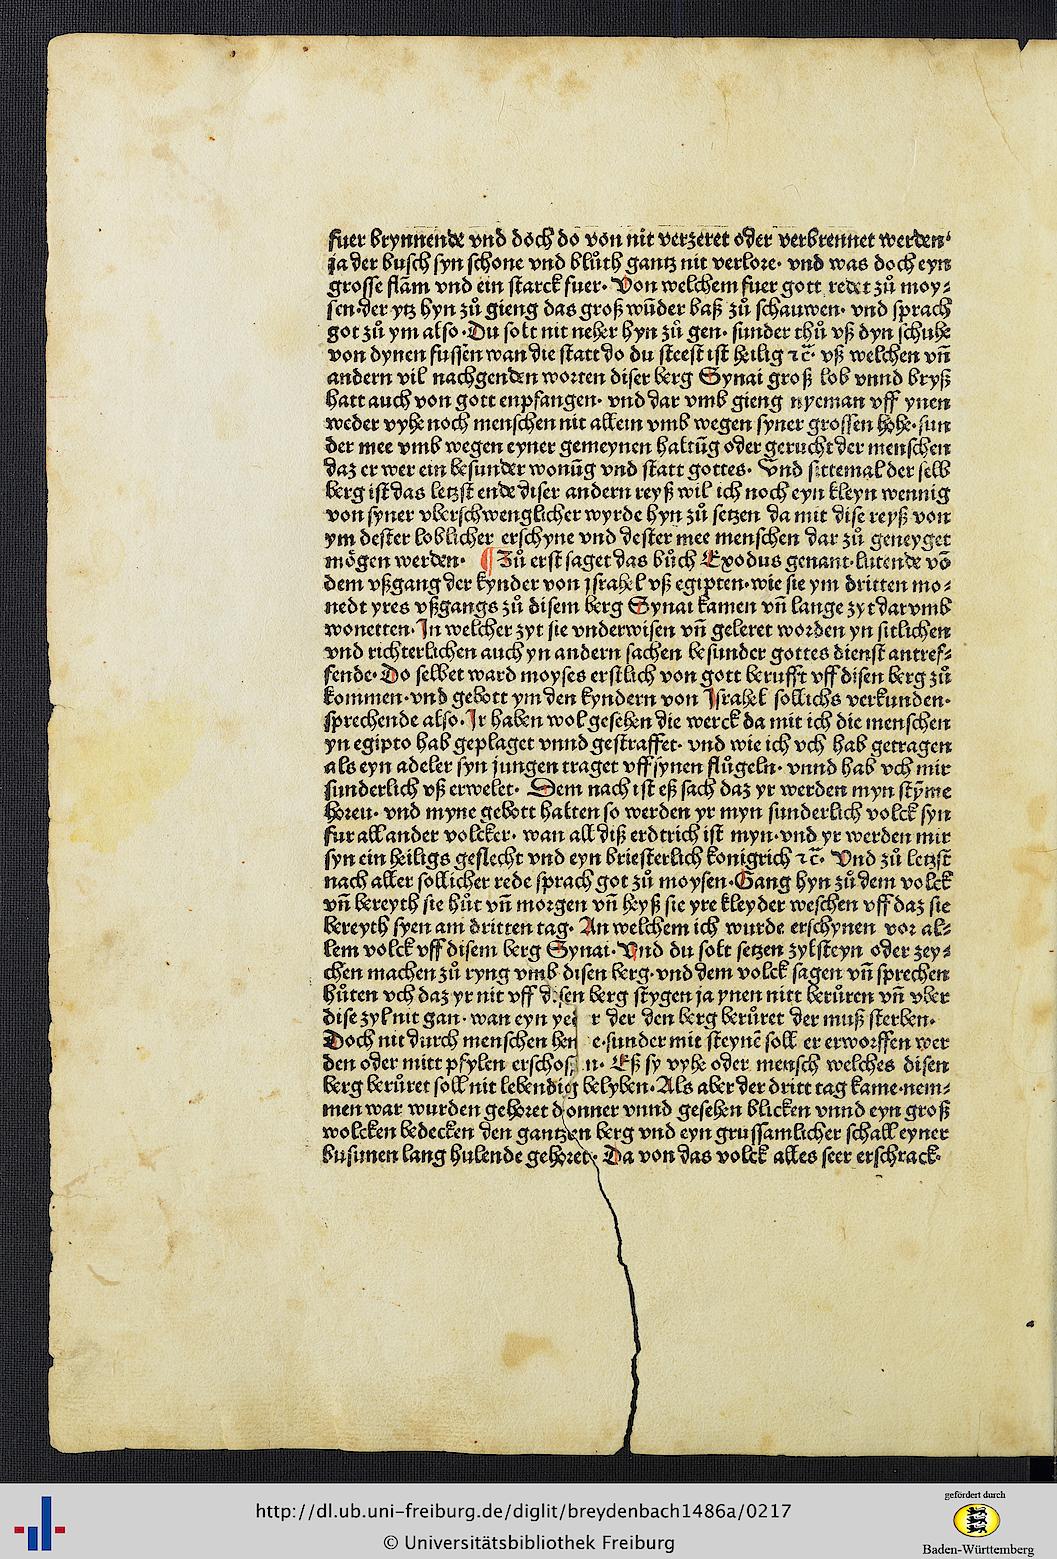 fuer brynnende vnd doch do von nit verzeret oder verbrennet werden·
ja der busch syn schone vnd blůth gantz nit verlore· vnd was doch eyn
grosse flam̄ vnd ein starck fuer· Von welchem fuer gott redet zů moy⸗
sen·der ytz hyn zů gieng das groß wūder baß zů schauwen· vnd sprach
got zů ym also·Du solt nit neher hyn zů gen· sunder thů vß dyn schuhe
von dynen fussen wan die statt do du steest ist heilig ⁊c̄· vß welchen vn̄
andern vil nachgenden worten diser berg Synai groß lob vnnd bryß
hatt auch von gott enpfangen· vnd dar vmb gieng nyeman vff ynen
weder vyhe noch menschen nit allein vmb wegen syner grossen hohe·sun
der mee vmb wegen eyner gemeynen haltūg oder gerucht der menschen
daz er wer ein besunder wonūg vnd statt gottes· Vnd sittemal der selb
berg ist das letzst ende diser andern reyß wil ich noch eyn kleyn wennig
von syner vberschwenglicher wyrde hyn zů setzen da mit dise reyß von
ym dester loblicher erschyne vnd dester mee menschen dar zů geneyget
mögen werden· ¶ Zů erst saget das bůch Exodus genant·lutende vō
dem vßgang der kynder von israhel vß egipten·wie sie ym dritten mo⸗
nedt yres vßgangs zů disem berg Synai kamen vn̄ lange zyt darvmb
wonetten·In welcher zyt sie vnderwisen vn̄ geleret worden yn sitlichen
vnd richterlichen auch yn andern sachen besunder gottes dienst antref⸗
fende·Do selbet ward moyses erstlich von gott berufft vff disen berg zů
kommen·vnd gebott ym den kyndern von Israhel sollichs verkunden·
sprechende also·Ir haben wol gesehen die werck da mit ich die menschen
yn egipto hab geplaget vnnd gestraffet· vnd wie ich vch hab getragen
als eyn adeler syn jungen traget vff synen flůgeln· vnnd hab vch mir
sunderlich vß erwelet· Dem nach ist eß sach daz yr werden myn stȳme
horen· vnd myne gebott halten so werden yr myn sunderlich volck syn
fur all ander volcker· wan all diß erdtrich ist myn·vnd yr werden mir
syn ein heiligs geslecht vnd eyn briesterlich konigrich ⁊c̄· Vnd zů letzst
nach aller sollicher rede sprach got zů moysen·Gang hyn zů dem volck
vn̄ bereyth sie hůt vn̄ morgen vn̄ heyß sie yre kleyder weschen vff daz sie
bereyth syen am dritten tag· An welchem ich wurde erschynen vor al⸗
lem volck vff disem berg Synai· Vnd du solt setzen zylsteyn oder zey⸗
chen machen zů ryng vmb disen berg·vnd dem volck sagen vn̄ sprechen
hůten vch daz yr nit vff disen berg stygen ja ynen nitt berůren vn̄ vber
dise zyl nit gan· wan eyn yed r der den berg berůret der muß sterben·
Doch nit durch menschen hen e·sunder mit steynē soll er erworffen wer
den oder mitt pfylen erschos n· Eß sy vyhe oder mensch welches disen
berg berůret soll nit lebendig belyben·Als aber der dritt tag kame·nem⸗
men war wurden gehoret donner vnnd gesehen blicken vnnd eyn groß
wolcken bedecken den gantzen berg vnd eyn grussamlicher schall eyner
busunen lang hulende gehoret· Da von das volck alles seer erschrack·
http://dl.ub.uni-freiburg.de/diglit/breydenbach1486a/0217
© Universitätsbibliothek Freiburg
gefördert durch
Baden-Württemberg